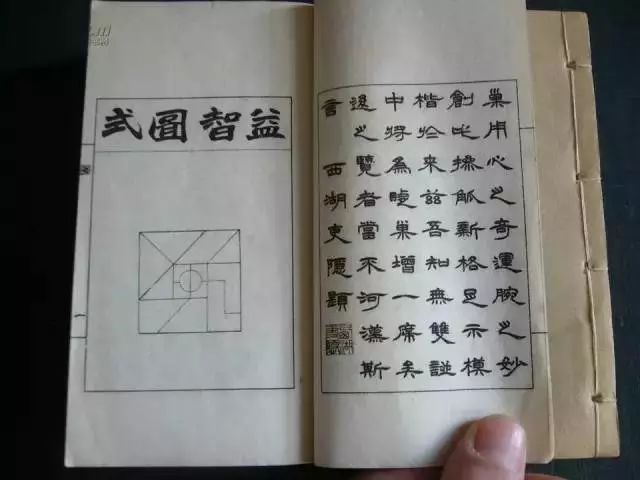 巢用心之奇運腕之妙
創此操觚新格㠯示模
楷於來茲吾知無雙譜
中將為睫巢增一席矣
後之覽者當不河漢斯
言 西湖吏隱題
益智圖式